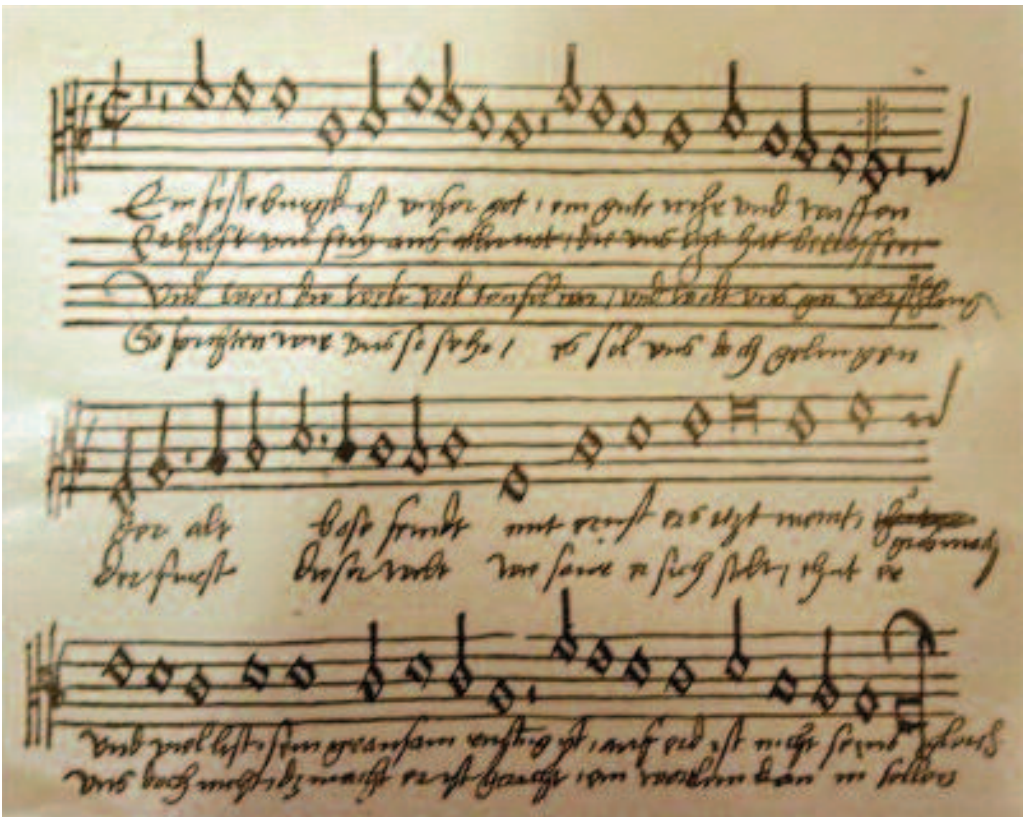 Ein feste burgk ist unser got, ein gute wehr und waffen
Er hilft uns frey aus aller not, die uns itzt hat betroffen
Und wen die welt vol teufel wer, und wolt uns gar
So furchten wir uns so sehr, es sol uns doch gelingen
Der alt bose feindt mit ernst ers itzt meint,
Der furst dieser welt wie saur er sich stelt, thut er
und viel list, sein grausam ist, auf erd ist nicht seins gleich
uns doch nicht, das macht er ist gericht, ein kan in fellen